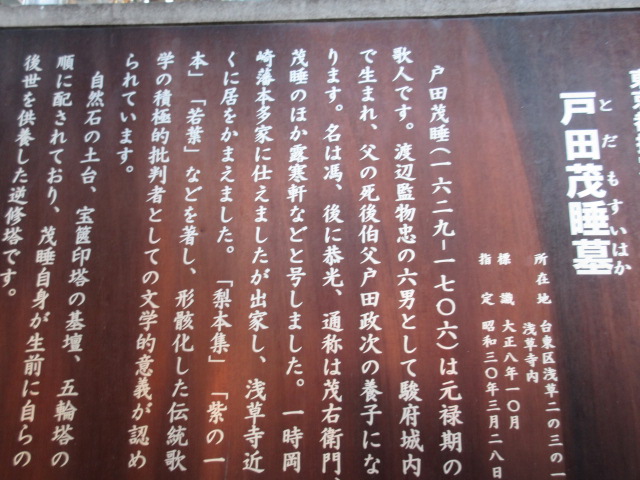 戸田茂睡墓
とだもすいはか
所在地 台東区浅草二の三の一
浅草寺内
標識 大正八年一〇月
指定 昭和三〇年三月二八日
戸田茂睡(一六二九−一七〇六)は元禄期の
歌人です。渡辺監物忠の六男として駿府城内
で生まれ、父の死後伯父戸田政次の養子にな
ります。名は馮、後に恭光、通称は茂右衛門、
茂睡のほか露寒軒などと号しました。一時岡
崎藩本多家に仕えましたが出家し、浅草寺近
くに居をかまえました。「梨本集」「紫の一
本」「若葉」などを著し、形骸化した伝統歌
学の積極的批判者としての文学的意義が認め
られています。
自然石の土台、宝篋印塔の基壇、五輪塔の
順に配されており、茂睡自身が生前に自らの
後世を供養した逆修塔です。